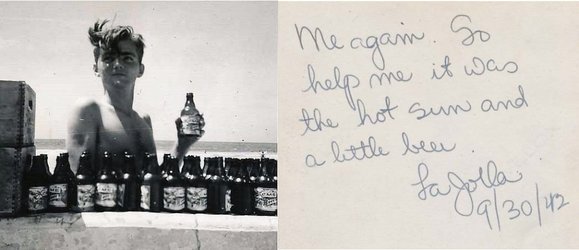 Me again. So
help me it was
the hot sun and
a little beer.
La Jolla
9/30/42